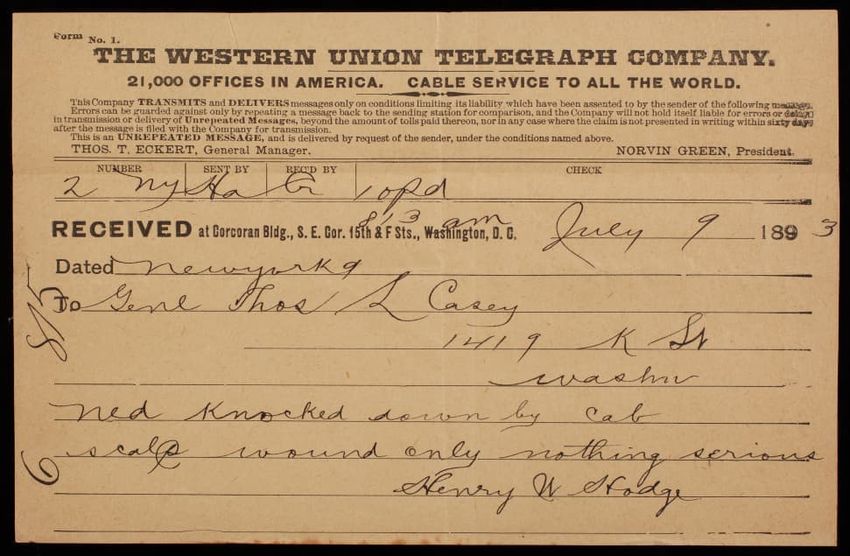 Form No. 1.
THE WESTERN UNION TELEGRAPH COMPANY.
21,000 OFFICES IN AMERICA. CABLE SERVICE TO ALL THE WORLD.
This Company TRANSMITS and DELIVERS messages only on conditions limiting its liability which have been assented to by the sender of the following message.
Errors can be guarded against only by repeating a message back to the sending station for comparison, and the Company will not hold itself liable for errors or delays
in transmission or delivery of Unrepeated Messages, beyond the amount of tolls paid thereon, nor in any case where the claim is not presented in writing within sixty days
after the message is filed with the Company for transmission.
This is an UNREPEATED MESSAGE, and is delivered by request of the sender, under the conditions named above.
THOS. T. ECKERT, General Manager. NORVIN GREEN, President.
NUMBER SENT BY REC'D BY CHECK
2 Ny Ha 10 pd
813 am
RECEIVED at Corcoran Bldg., S. E. Cor. 15th & F Sts., Washington, D. C. July 9 1893
Dated Newyork 9
To Genl Thos L Casey
1419 K St
Washn
Ned Knocked down by cab
scalp wound only nothing serious
Henry W Hodge
845
6